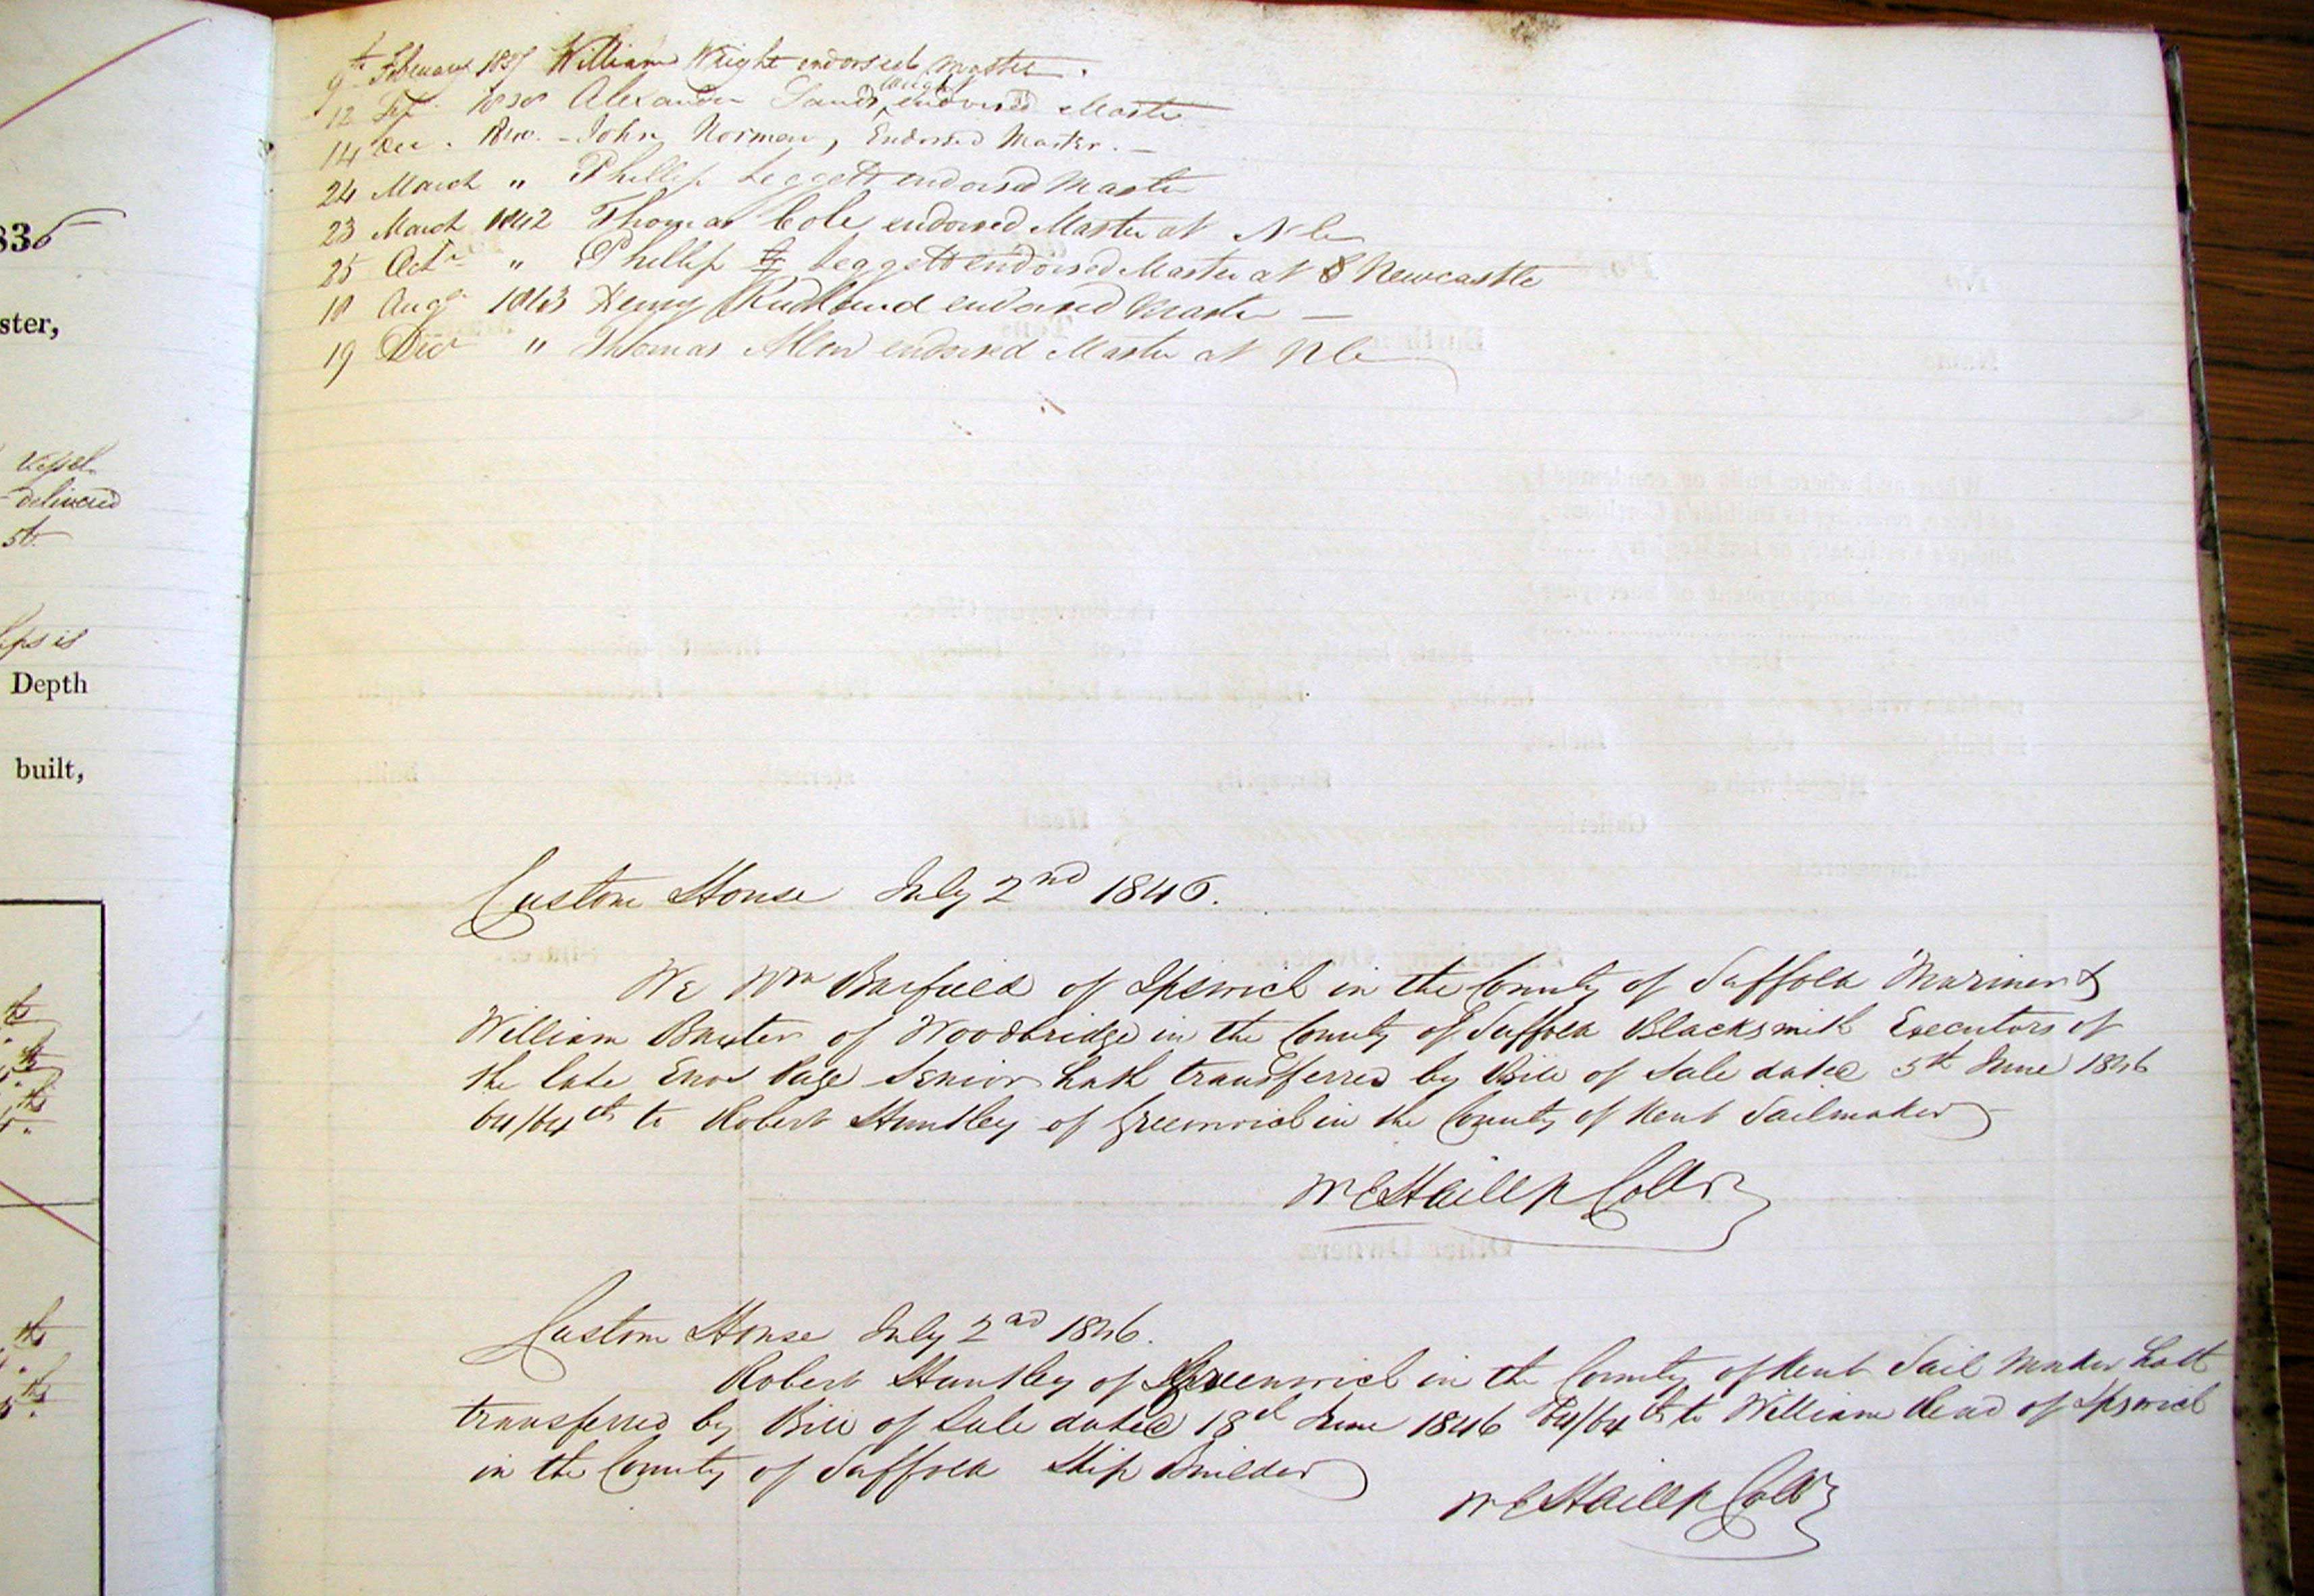 836
ster,
Vessel
delivered
is
Depth
built,
9th February 1837 William Wright endorsed Master.
12 1838 Alexander Sands endorsed Master
14 Dec. 1840. - John Norman, Endorsed Master. -
24 March " Phillip Leggett endorsed Master
23 March 1842 Thomas Cole endorsed Master at N C
25 Octr " Phillip Leggett endorsed Master at Newcastle
18 Augt 1843 Henry endorsed Master -
19 Decr " Thomas Allen endorsed Master at N C
Custom House July 2nd 1846.
We Wm Barfield of Ipswich in the County of Suffolk Mariner &
William Baxter of Woodbridge in the County of Suffolk Blacksmith Executors of
the late Enos Page Senior hath transferred by Bill of Sale dated 5th June 1846
64/64ths to Robert Huntley of Greenwich in the County of Kent Sailmaker
Collr
Custom House July 2nd 1846.
Robert Huntley of Greenwich in the County of Kent Sail Maker hath
transferred by Bill of Sale dated 18th June 1846 64/64ths to William Read of Ipswich
in the County of Suffolk Ship Builder
Collr